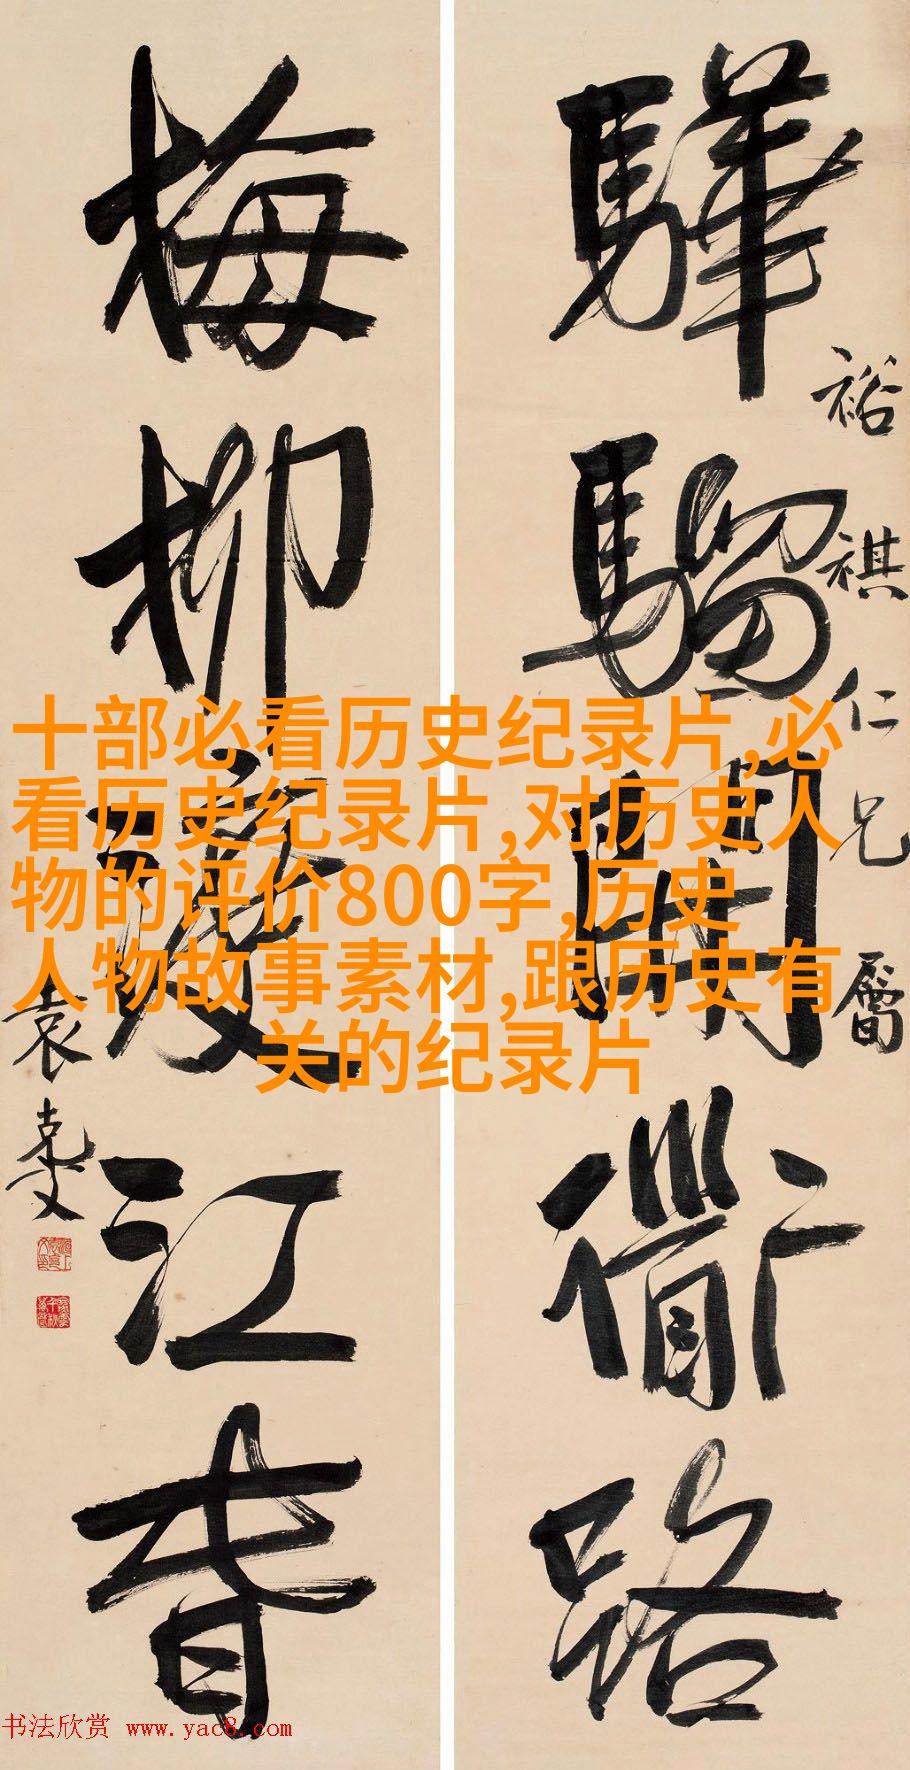 驊騮開衜路
裕祺仁兄屬
梅柳渡江春
袁克文
十部必看历史纪录片,必
看历史纪录片,对历史人
物的评价800字,历史
人物故事素材,跟历史有
关的纪录片
书法欣赏 www.yac8.com